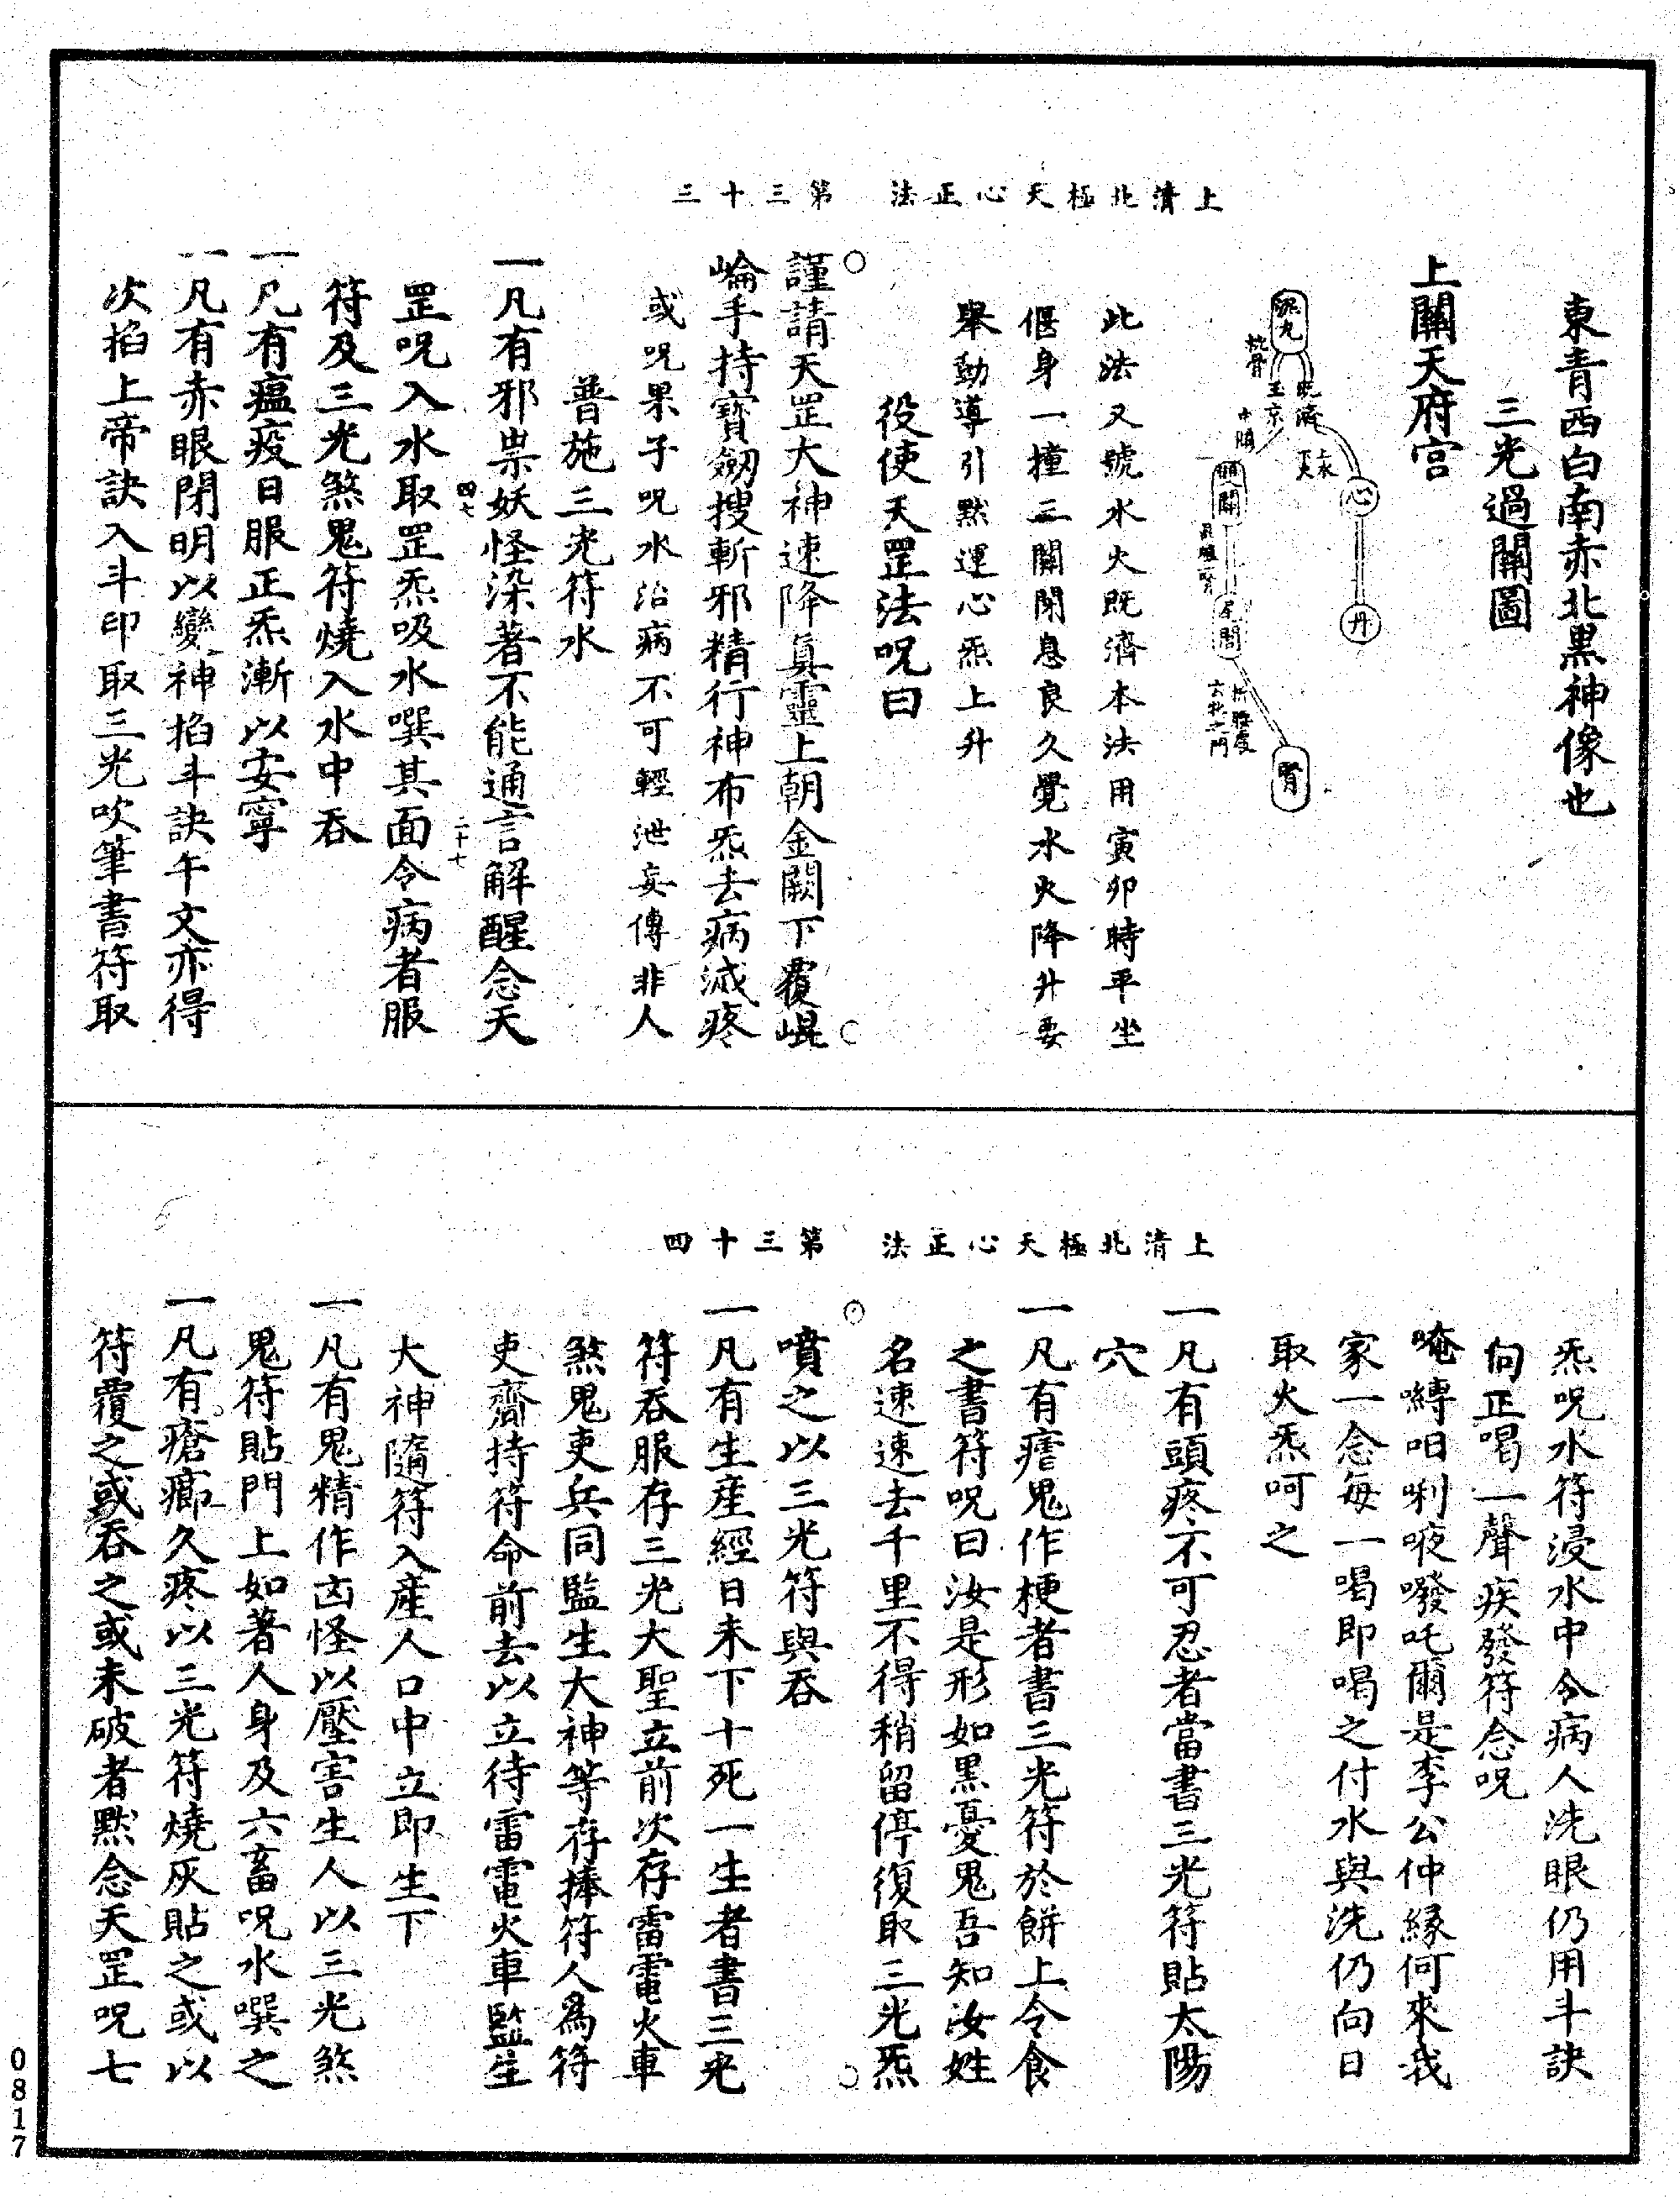 上清北極天心正法　第三十三
東青西白南赤北黑神像也
三光過關圖
上關天府宮
泥丸
枕骨
玉京
既濟
心
丹
腎
此法又號水火既濟本法用寅卯時平坐
偃身一撞三關閉息良久覺水火降升要
舉動導引默運心炁上升
役使天罡法呪曰
謹請天罡大神速降眞靈上朝金闕下覆崐
崘手持寶劒搜斬邪精行神布炁去病滅疼
或呪果子呪水治病不可輕泄妄傳非人
普施三光符水
一凡有邪祟妖怪染著不能通言解醒念天
四七
二十七
罡呪入水取罡炁吸水噀其面令病者服
符及三光煞鬼符燒入水中吞
一凡有瘟疫日服正炁漸以安寧
一凡有赤眼閉明以變神掐斗訣午文亦得
次掐上帝訣入斗印取三光吹筆書符取
上清北極天心正法　第三十四
炁呪水符浸水中令病人洗眼仍用斗訣
向正喝一聲疾發符念呪
唵嚩呬唎㖡噯吒爾是李公仲緣何來我
家一念每一喝即喝之付水與洗仍向日
取火炁呵之
一凡有頭疼不可忍者當書三光符貼太陽
穴
一凡有瘧鬼作梗者書三光符於餅上令食
之書符呪曰汝是形如黑憂鬼吾知汝姓
名速速去千里不得稍留停復取三光炁
噴之以三光符與吞
一凡有生産經日未下十死一生者書三光
符吞服存三光大聖立前次存雷電火車
煞鬼吏兵同監生大神等存捧符人爲符
吏齎持符命前去以立待雷電火車監生
大神隨符入産人口中立即生下
一凡有鬼精作凶怪以壓害生人以三光煞
鬼符貼門上如著人身及六畜呪水噀之
一凡有瘡癤久疼以三光符燒灰貼之或以
符覆之或吞之或未破者默念天罡呪七
0817